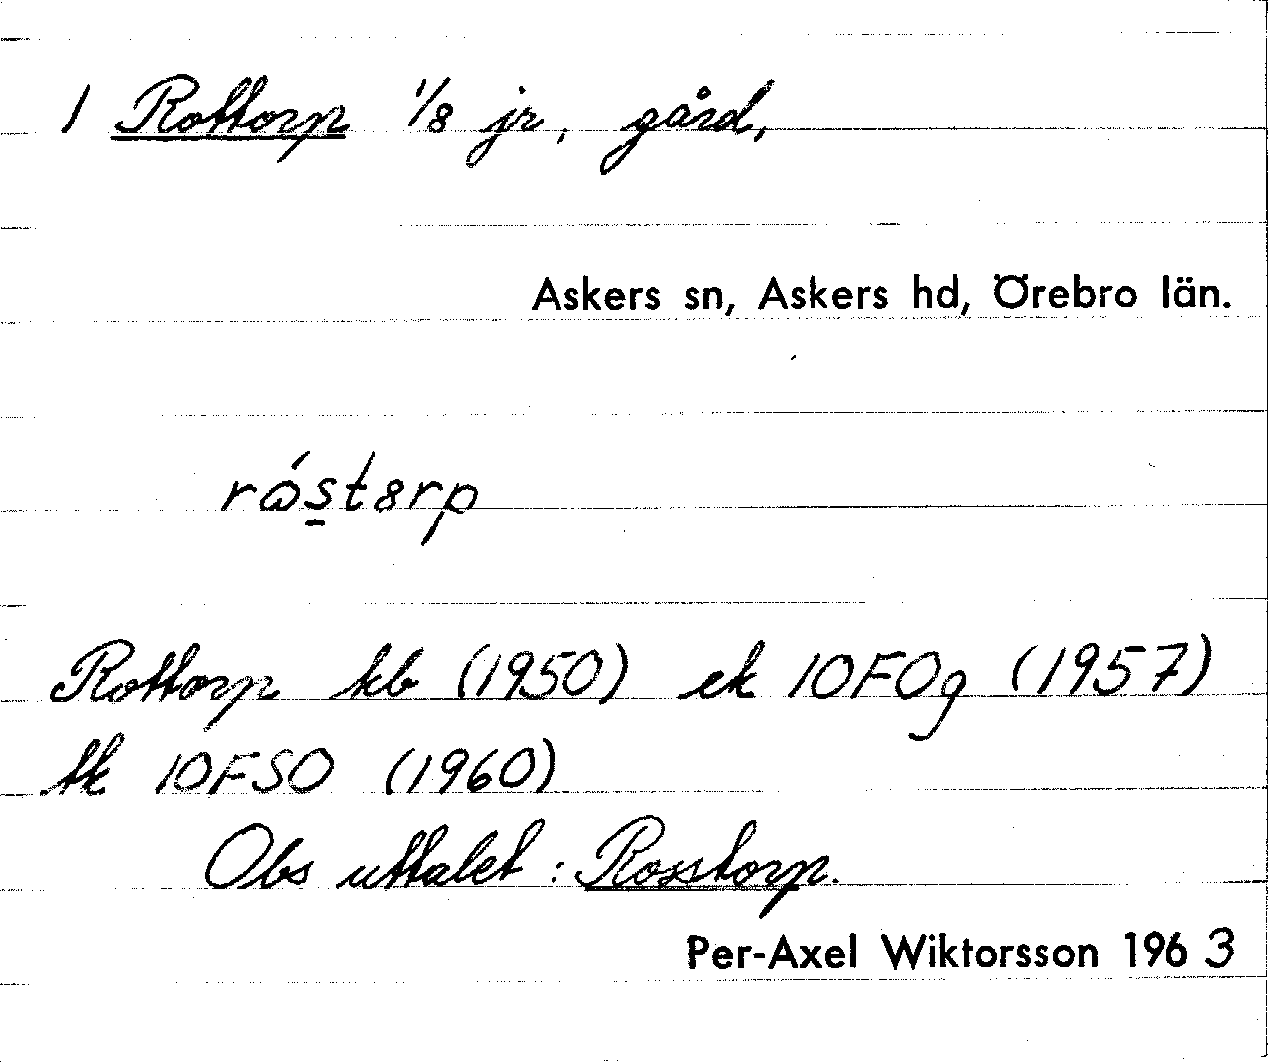 1 Rottorp 1/8 jr, gård,
Askers sn, Askers hd, Örebro län.
rɷ́s̲tɘrp
Rottorp kb (1950) ek 10F0g (1957)
tk 10FSO (1960)
Obs uttalet: Rosstorp.
Per-Axel Wiktorsson 1963